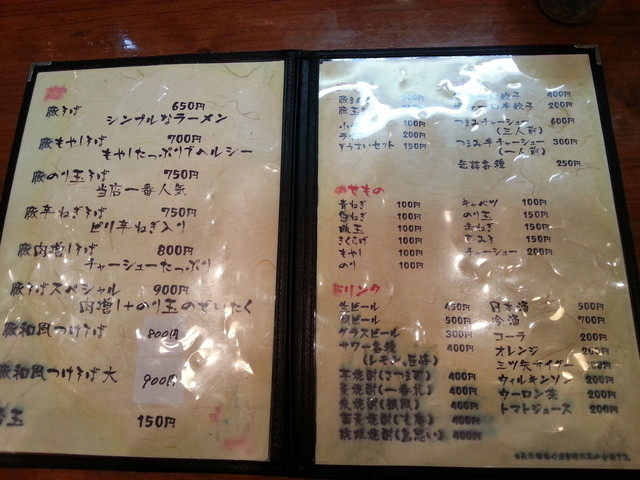 豚そば 650円
シンプルなラーメン
豚もやしそば 700円
もやしたっぷりでヘルシー
豚のり玉そば 750円
当店一番人気
豚辛ねぎそば 750円
ピリ辛ねぎ入り
豚肉増しそば 800円
チャーシューたっぷり
豚そばスペシャル 900円
肉増し+のり玉のぜいたく
豚和風つけそば 800円
豚和風つけそば大 900円
玉 150円
餃子 400円
餃子 200円
100円
200円
ぞうすいセット 150円
つまみチャーシュー 600円
(三人前)
つまみチャーシュー 300円
(一人前)
缶詰各種 250円
のせもの
青ねぎ 100円
白ねぎ 100円
味玉 100円
きくらげ 100円
もやし 100円
のり 100円
キャベツ 100円
のり玉 150円
赤ねぎ 150円
150円
チャーシュー 200円
ドリンク
生ビール 450円
500円
グラスビール 300円
サワー各種 400円
芋焼酎(さつま 400円
麦焼酎(一番札) 400円
米焼酎 400円
400円
400円
日本酒 500円
冷酒 700円
コーラ 200円
オレンジ 200円
三ツ矢サイダー
ウィルキンソン 200円
ウーロン茶 200円
トマトジュース 200円